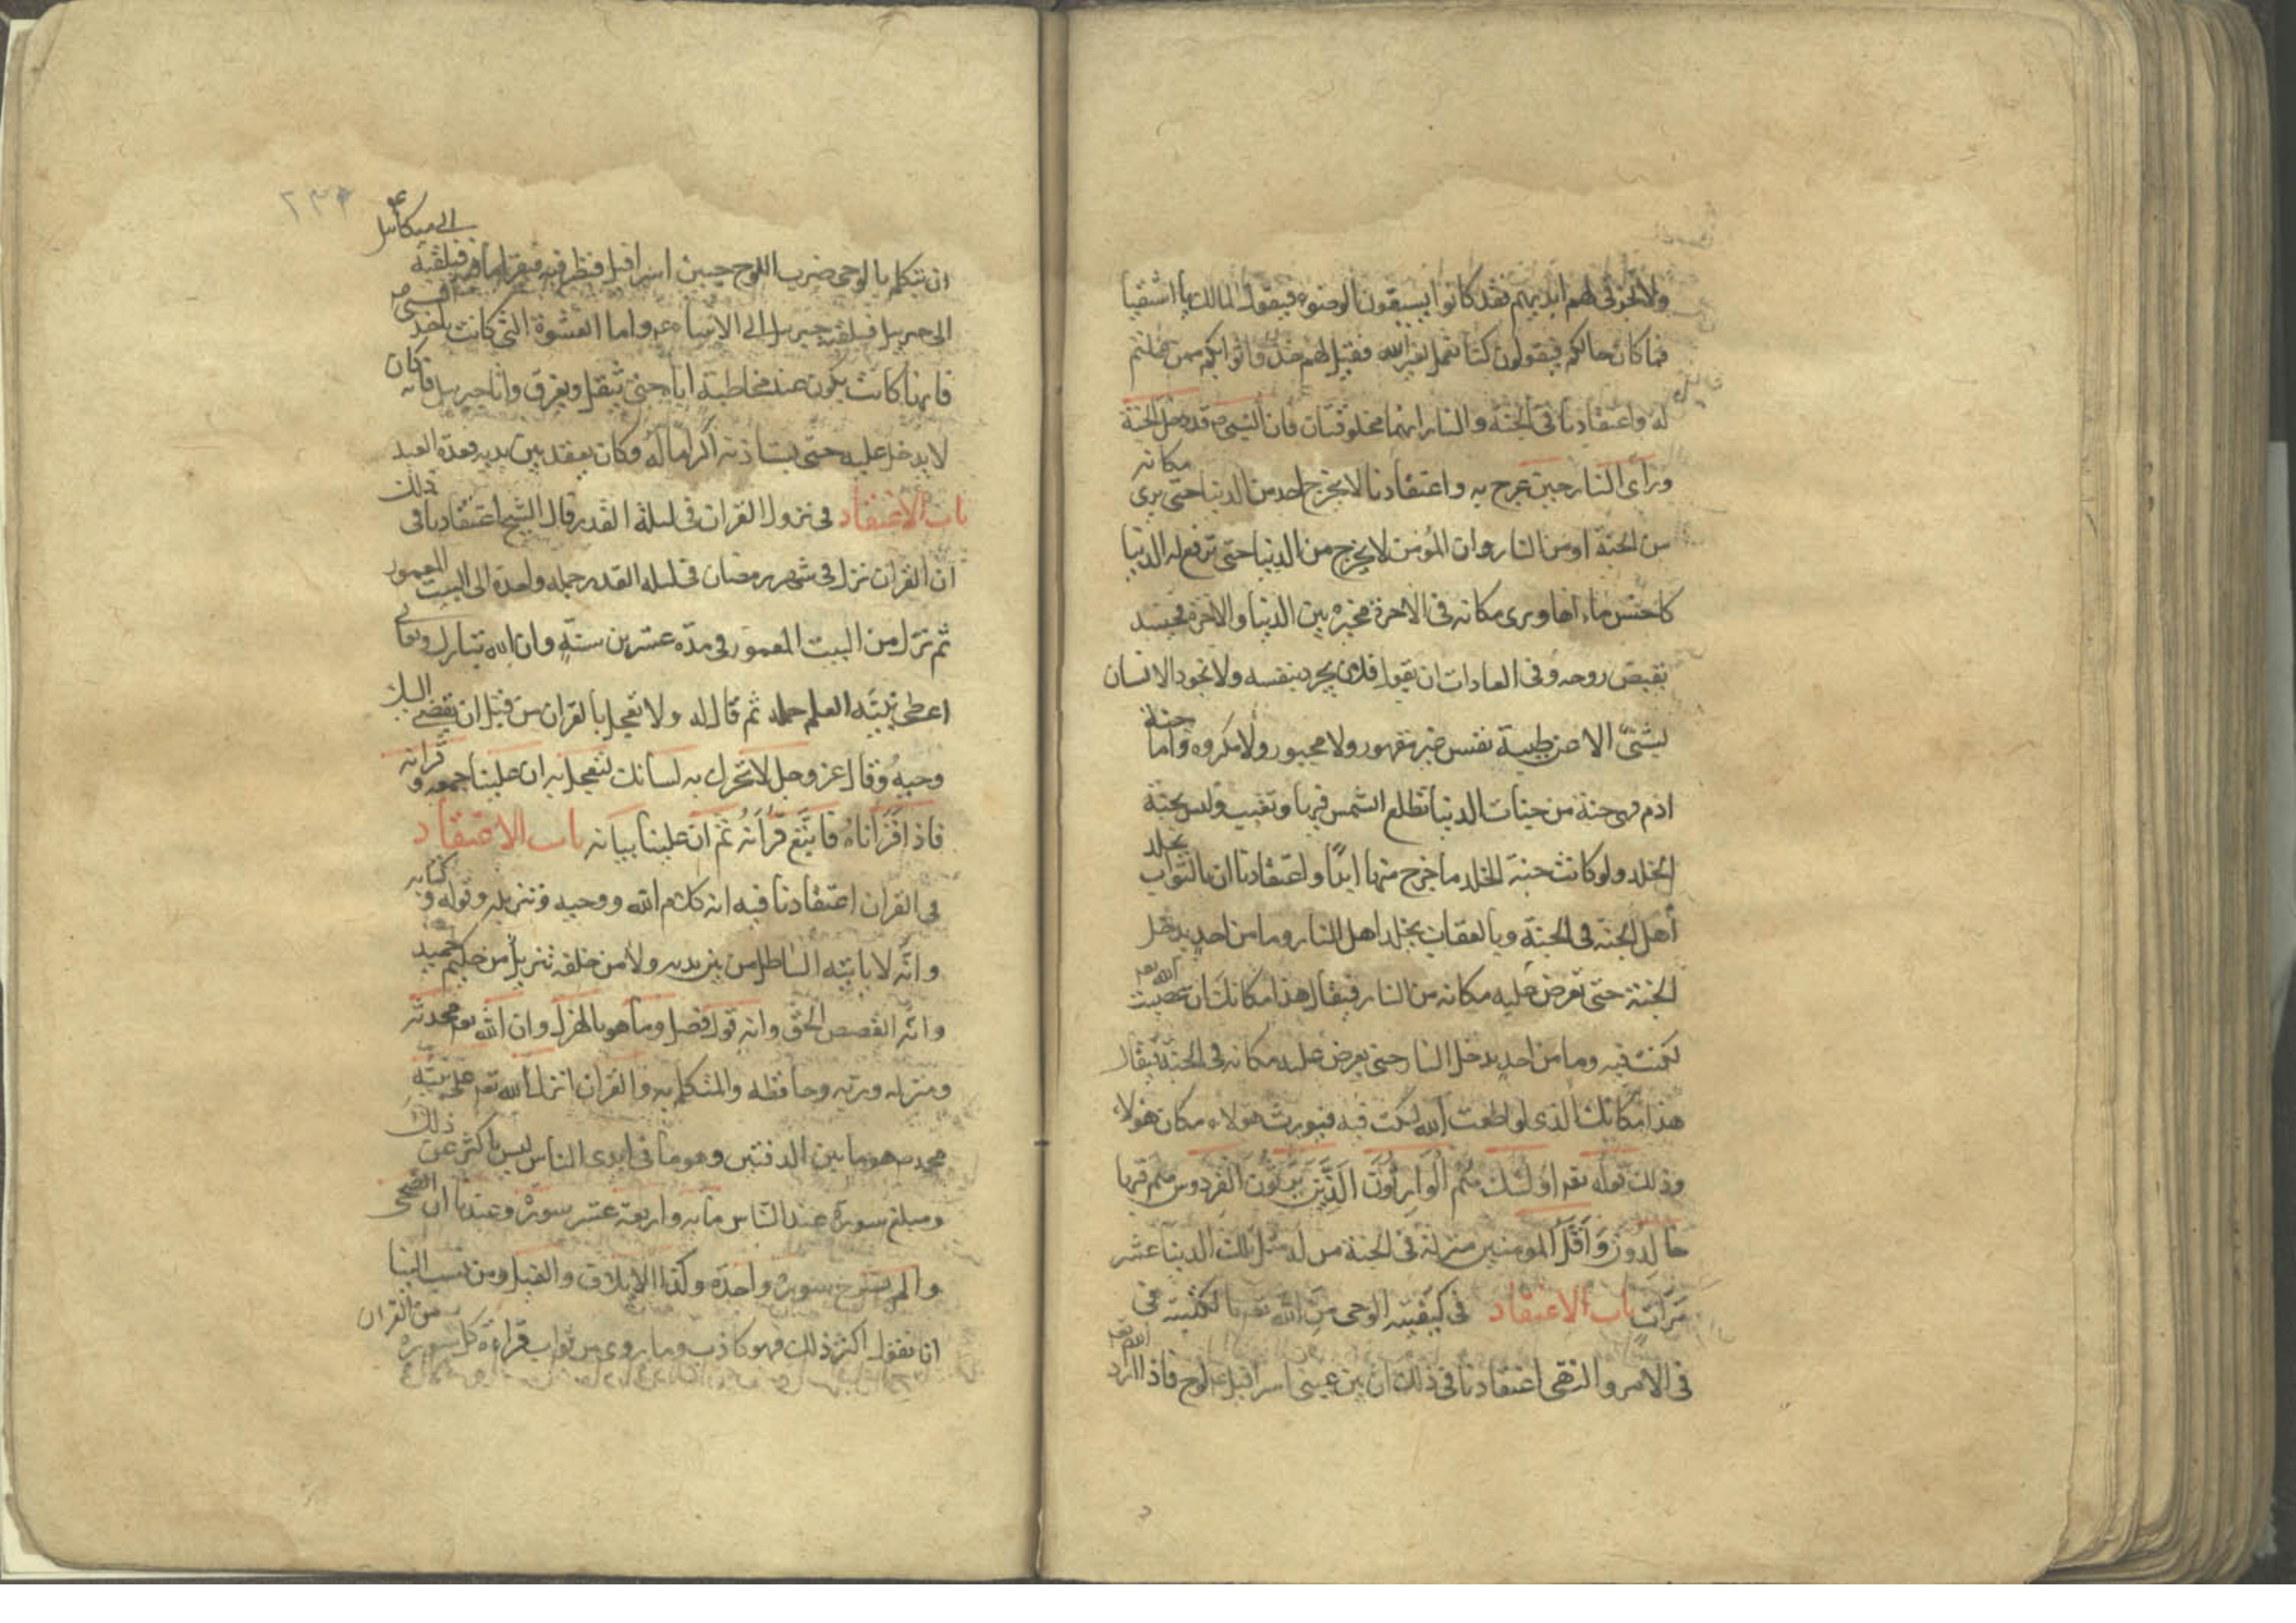 ولا تحرقى لهم ايديهم فقد كانوا يسبقون الوضوء فيقول المالك يا اشقيا
فما كان حالكم فيقولون كنا نعمل لغير الله فقيل لهم خذوا ثوابكم ممن عملتم
له واعتقادنا فى الجنة والنار انهما مخلوقتان فان النبى ص قد دخل الجنة
وراى النار حين عرج به واعتقادنا لا يخرج احد من الدنيا حتى يرى مكانه
من الجنة او من النار وان المؤمن لا يخرج من الدنيا حتى ترفع له الدنيا
كاحسن ما راها ويرى مكانه فى الاخرة فخيره بين الدنيا والاخرة
بقبض روحه وفى العادات ان يقول فلان يجود بنفسه ولا يجود الانسان
بشئ الا عن طيبة نفس غير مقهور ولا مجبور ولا مكروه واما جنة
ادم فهى جنة من جنات الدنيا تطلع الشمس فيها وتغيب وليس بجنة
الخلد ولو كانت جنة الخلد ما خرج منها ابدًا واعتقادنا ان بالثواب يخلد
أهل الجنة فى الجنة وبالعقاب يخلد اهل النار وما من احد يدخل
الجنة حتى يعرض عليه مكانه من النار فيقال هذا مكانك ان عصيت الله تعه
لكنت فيه وما من احد يدخل النار حتى يعرض عليه مكانه فى الجنة فيقال
هذا مكانك الذى لو اطعت الله لكنت فيه فيورث هؤلاء مكان هولاء
وذلك قوله تعه اولئك هُم الوارثون الذين يرثون الفردوس هم فيها
خالدون وَاقل المومنين منزلة فى الجنة من له مثل ملك الدنيا عشر
مَرّات باب الاعتقاد فى كيفية الوحى من الله تعه بالكتبة فى
فى الامر والنهى اعتقادنا فى ذلك ان بين عينى اسرافيل عه لوح فاذا اراد الله تعه
ان يتكلم بالوحى ضرب اللوح جبين اسرافيل فنظر فيه فيقرا ما فيه فيلقيه الى ميكائيل
الى جبريل فيلقيه جبريل الى الانبياء عم واما الغشوة التى كانت ياخذ النبى ص
فانها كانت يكون عند مخاطبة اياه حتى يثقل ويعرق واما جبريل فانه كان
لا يدخل عليه حتى يستاذنه اكراما له وكان يقعد بين يديه قعدة العبد
باب الاعتقاد فى نزول القران فى ليلة القدر قال الشيخ اعتقادنا فى ذلك
ان القران نزل فى شهر رمضان فى ليله القدر جمله واحدة الى البيت المعمور
ثم نزل من البيت المعمور فى مدّه عشرين سنةٍ وان الله تبارك وتعالى
اعطى نبيّه العلم جمله ثم قال له ولا تعجل بالقران من قبل ان يقضى اليك
وحيهُ وقال عز وجل لا تحرك به لسانك لتعجل به ان علينا جمعه و قرانه
فاذا قرَأناهُ فاتّبع قرأنهُ ثم ان علينا بيانه باب الاعتقاد
فى القران اعتقادنا فيه انه كلام الله ووحيه وتنزيله وقوله و كتابه
وانّه لا ياتيه الباطل من بين يديه ولا من خلفه تنزيل من حكيم حميد
وانّه القصص الحق وانه قول فصل وما هو بالهزل وان الله تعه محدثه
ومنزله وربه وحافظه والمتكلم به والقران انزل الله تعه على نبيّه
محمد ص هو ما بين الدفتين وهو ما فى ايدى الناس ليس باكثر عن ذلك
ومبلغ سورة عند الناس مايه واربعة عشر سورة وعندنا ان الضحى
والم نشرح سورة واحدة وكذا الايلاف والفيل ومن نسب الينا
انا نقول اكثر ذلك فهو كاذب وما روى من ثواب قراءة كل سوره من القران